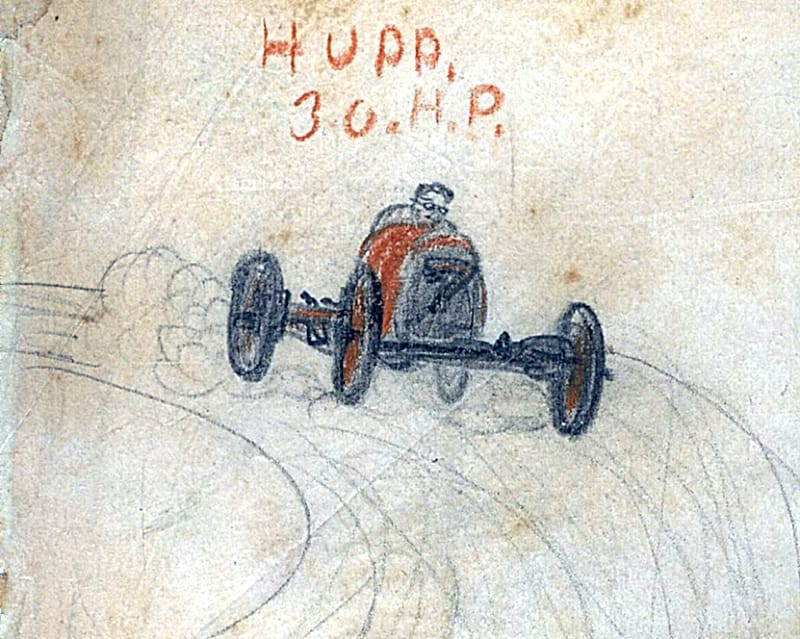 HUPP,
30.H.P.
7